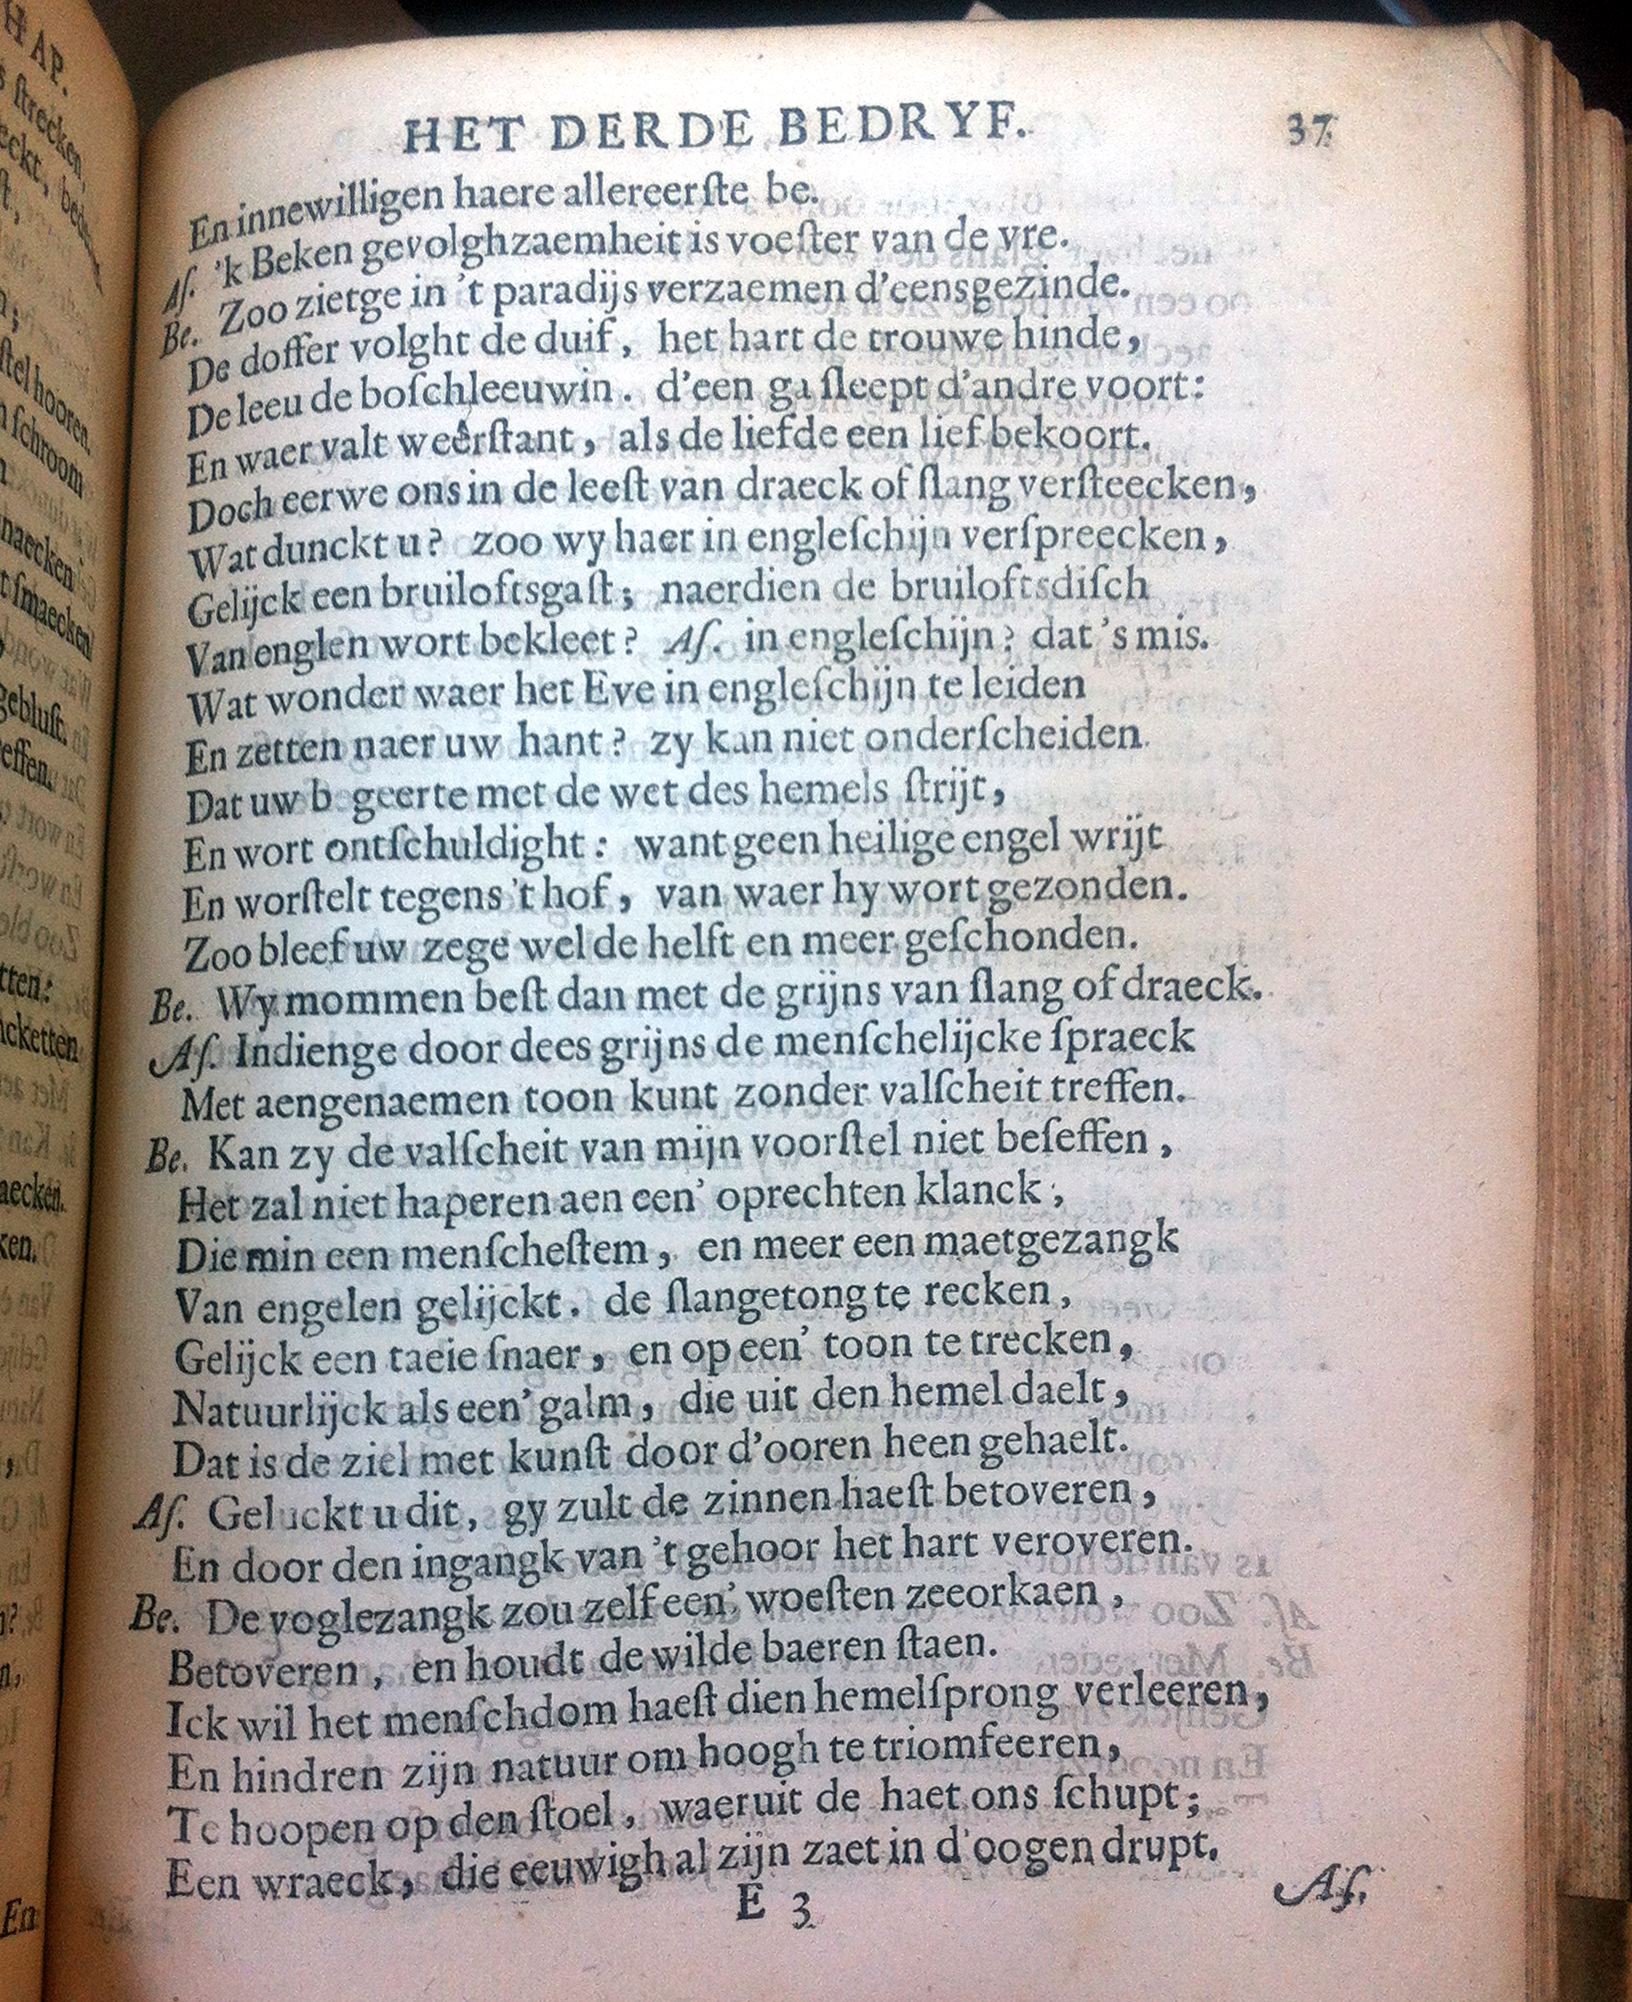 HET DERDE BEDRYF. 37
En innewilligen haere allereerſte be.
Aſ. 'k Beken gevolghzaemheit is voeſter van de vre.
Be. Zoo zietge in 't paradijs verzaemen d'eensgezinde.
De doffer volght de duif, het hart de trouwe hinde,
De leeu de boſchleeuwin. d'een ga ſleept d'andre voort:
En waer valt weêrſtant, als de liefde een lief bekoort.
Doch eerwe ons in de leeſt van draeck of ſlang verſteecken,
Wat dunckt u? zoo wy haer in engleſchijn verſpreecken,
Gelijck een bruiloftsgaſt; naerdien de bruiloftsdiſch
Van englen wort bekleet? Aſ. in engleſchijn? dat 's mis.
Wat wonder waer het Eve in engleſchijn te leiden
En zetten naer uw hant? zy kan niet onderſcheiden
Dat uw begeerte met de wet des hemels ſtrijt,
En wort ontſchuldight: want geen heilige engel wrijt
En worſtelt tegens 't hof, van waer hy wort gezonden.
Zoo bleef uw zege wel de helft en meer geſchonden.
Be. Wy mommen beſt dan met de grijns van ſlang of draeck.
Aſ. Indienge door dees grijns de menſchelijcke ſpraeck
Met aengenaemen toon kunt zonder valſcheit treffen.
Be. Kan zy de valſcheit van mijn voorſtel niet beſeffen,
Het zal niet haperen aen een' oprechten klanck;
Die min een menſcheſtem, en meer een maetgezangk
Van engelen gelijckt. de ſlangetong te recken,
Gelijck een taeie ſnaer, en op een' toon te trecken,
Natuurlijck als een' galm, die uit den hemel daelt,
Dat is de ziel met kunſt door d'ooren heen gehaelt.
Aſ. Geluckt u dit, gy zult de zinnen haeſt betoveren,
En door den ingangk van 't gehoor het hart veroveren.
Be. De voglezangk zou zelf een' woeſten zeeorkaen,
Betoveren, en houdt de wilde baeren ſtaen.
Ick wil het menſchdom haeſt dien hemelſprong verleeren,
En hindren zijn natuur om hoogh te triomfeeren,
Te hoopen op den ſtoel, waeruit de haet ons ſchupt;
Een wraeck, die eeuwigh al zijn zaet in d'oogen drupt.
E 3 Aſ.